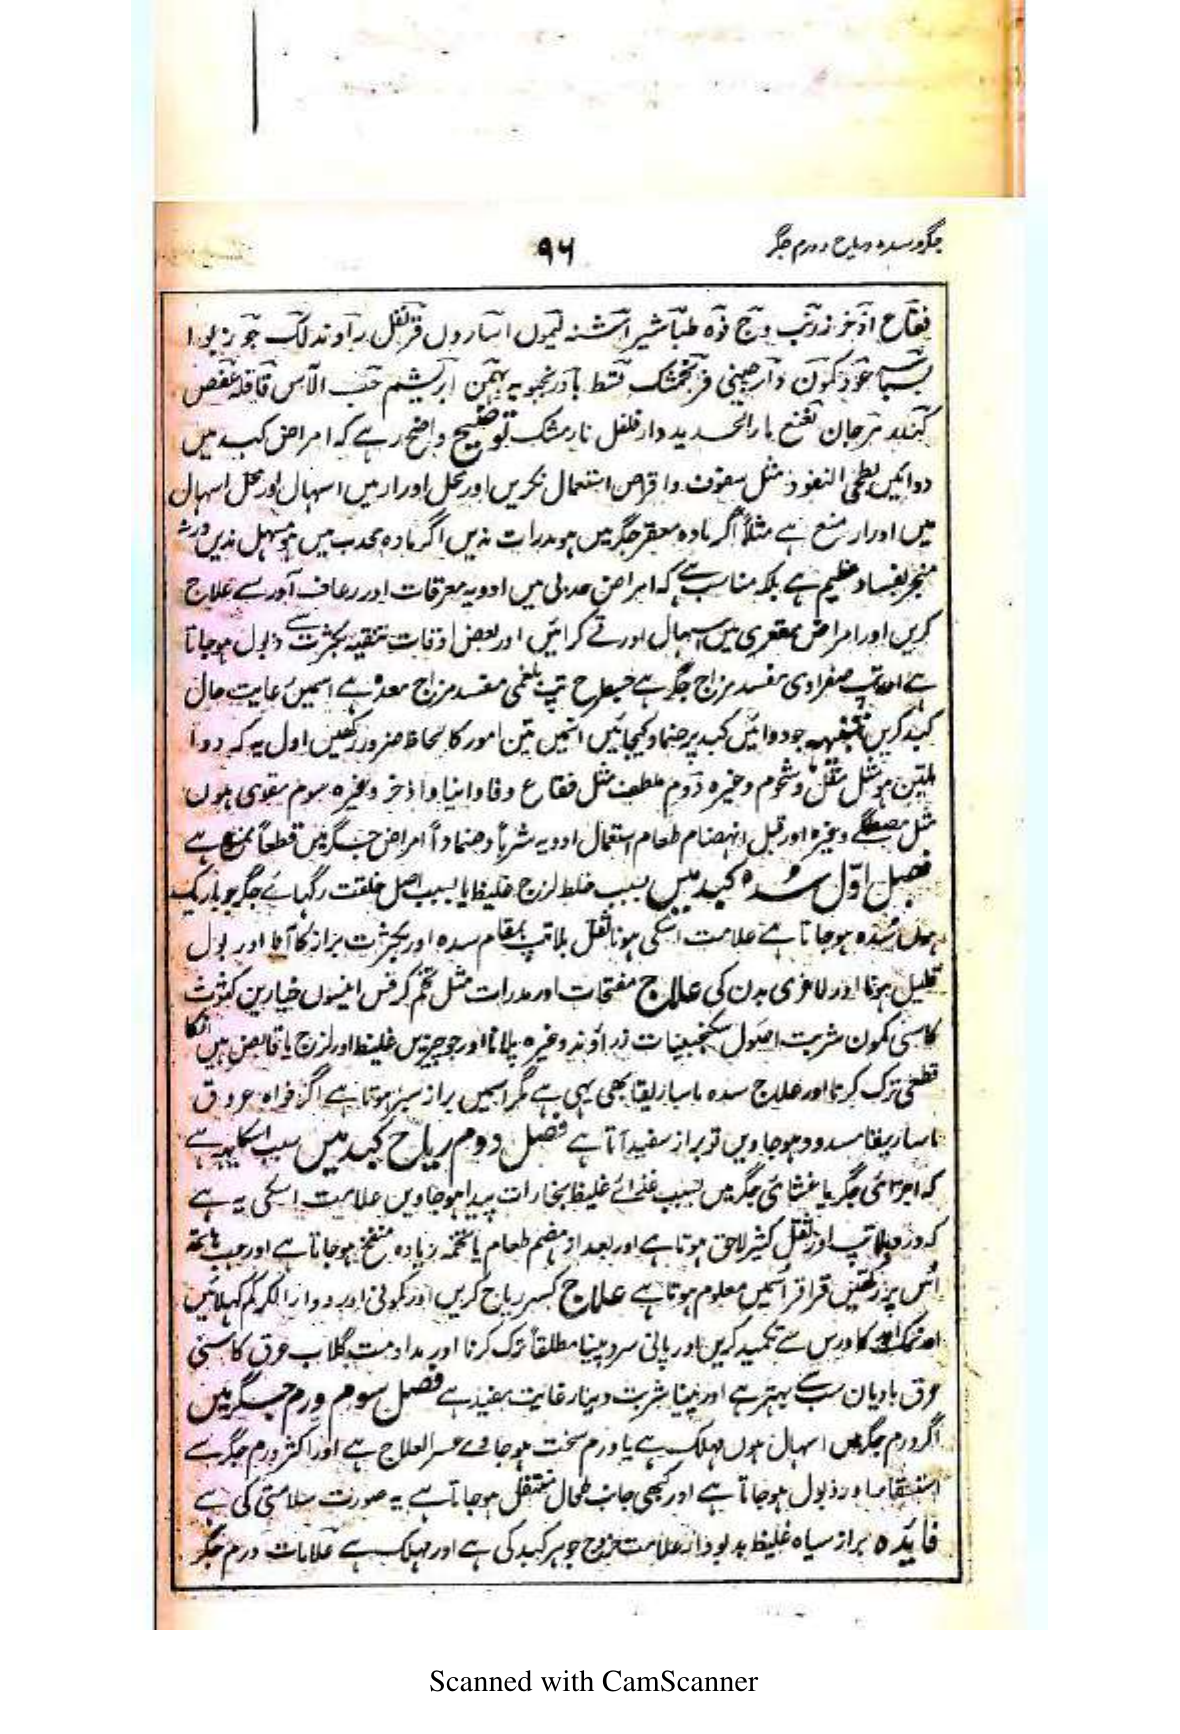 جگر و سدہ و ریاح و ورم جگر
۹۶
فقاح اذخر زرنب وج فوہ طباشیر اشنہ لیموں اسارون قرنفل راوند لک جوزبوا
بسباسہ عود کمون دارچینی فرنجمشک قسط بادرنجبویہ بہمن ابریشم حب الآس قاقلہ عفص
کندر مرجان نعنع ماء الحدید دارفلفل نارمشک توضیح واضح رہے کہ امراض کبد میں
دوائیں بطی النفوذ مثل سفوف واقراص استعمال نکریں اور محل ادرار میں اسہال اور محل اسہال
میں ادرار منع ہے مثلاً اگر مادہ مقعر جگر میں ہو مدرات ندیں اگر مادہ محدب میں ہو مسہل ندیں ورنہ
منجر بفساد عظیم ہے بلکہ مناسب ہے کہ امراض حدبی میں ادویہ معرقات اور رعاف آور سے علاج
کریں اور امراض مقعری میں اسہال اور قے کرائیں اور بعض اوقات تنقیہ بکثرت سے ذبول ہوجاتا
ہے اور تپ صفراوی مفسد مزاج جگر ہے جسطرح تپ بلغمی مفسد مزاج معدہ ہے اسمیں رعایت حال
کبد کریں تنبیہ جو دوائیں کبد پر ضماد کیجائیں انمیں تین امور کا لحاظ ضرور رکھیں اول یہ کہ دوا
ملین ہو مثل مقل و شحوم وغیرہ دوم ملطف مثل فقاع و فاوانیا و اذخر وغیرہ سوم مقوی ہوں
مثل مصطگے وغیرہ اور قبل انہضام طعام استعمال ادویہ شرباً و ضماداً امراض جگر میں قطعاً منع ہے
فصل اوّل سُدہ کبد میں بسبب خلط لزج غلیظ یا بسبب اصل خلقت رگہائے جگر جو باریک
ہوں سُدہ ہوجاتا ہے علامت اسکی ہونا ثقل بلا تپ بمقام سدہ اور بکثرت براز کا آنا اور بول
قلیل ہونا اور لاغری بدن کی علاج مفتحات اور مدرات مثل تخم کرفس انیسوں خیارین کشوث
کاسنی کمون شربت اصول سکنجبینات زراوند وغیرہ پلانا اور جو چیزیں غلیظ اور لزج یا قابض ہیں انکا
قطعی ترک کرنا اور علاج سدہ ماساریقا بھی یہی ہے مگر اسمیں براز سبز ہوتا ہے اگر افواہ عروق
ماساریقا مسدود ہوجاویں تو براز سفید آتا ہے فصل دوم ریاح کبد میں سبب اسکا یہہ ہے
کہ اجزائی جگر یا غشائی جگر میں بسبب غذائے غلیظ بخارات پیدا ہوجاویں علامت اسکی یہ ہے
کہ درد بلا تپ اور ثقل کثیر لاحق ہوتا ہے اور بعد از ہضم طعام یا تخمہ زیادہ منتفخ ہوجاتا ہے اور جب ہاتھ
اُس پر رکھیں قراقر اسمیں معلوم ہوتا ہے علاج کسر ریاح کریں اور کمونی اور دواء الکرکم کہلائیں
اور نمک اور کاورس سے تکمید کریں اور پانی سرد پینا مطلقاً ترک کرنا اور مداومت گلاب عرق کاسنی
عرق بادیان سب سے بہتر ہے اور پینا شربت دینار غایت مفید ہے فصل سوم ورم جگر میں
اگر ورم جگر میں اسہال ہوں مہلک ہے یا ورم سخت ہوجاوے عسر العلاج ہے اور اکثر ورم جگر سے
استسقا اور ذبول ہوجاتا ہے اور کبھی جانب طحال منتقل ہوجاتا ہے یہ صورت سلامتی کی ہے
فائدہ براز سیاہ غلیظ بدبودار علامت خروج جوہر کبد کی ہے اور مہلک ہے علامات ورم جگر
Scanned with CamScanner